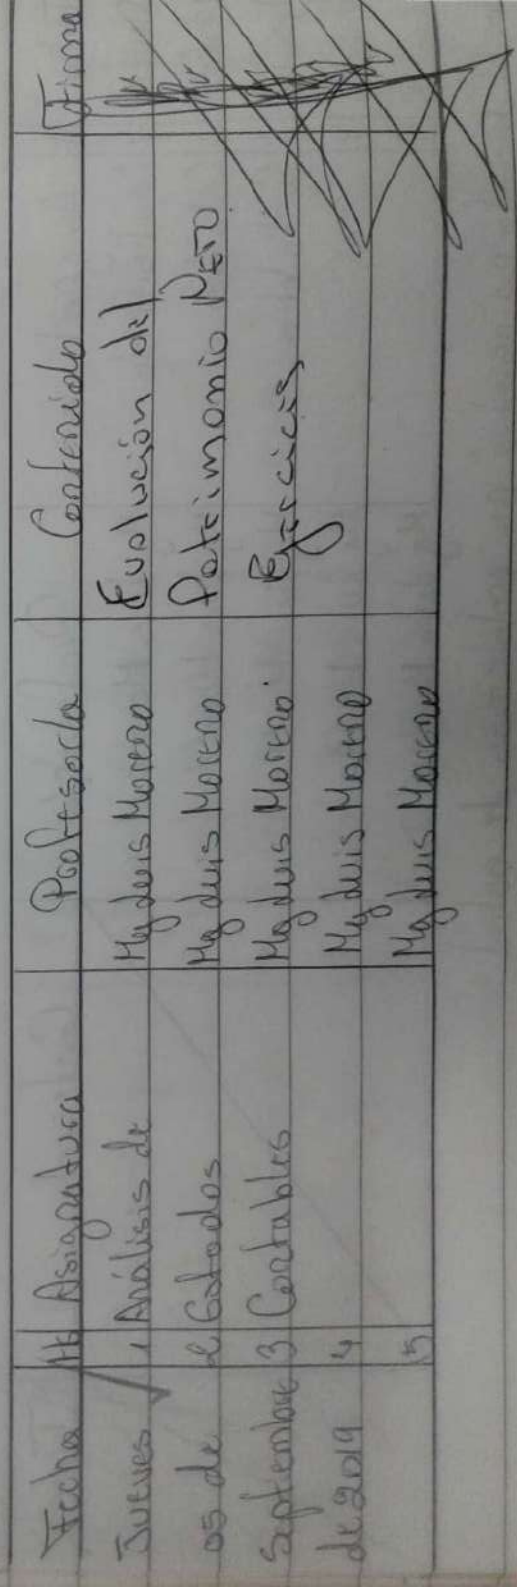 Fecha Hs Asignatura Profesor/a Contenido Firma
Jueves 1 Análisis de Mg Luis Moreno Evolución del
05 de 2 Estados Mg Luis Moreno Patrimonio Neto
Septembre 3 Contables Mg Luis Moreno. Ejercicios
de 2019 4 Mg Luis Moreno
5 Mg Luis Moreno